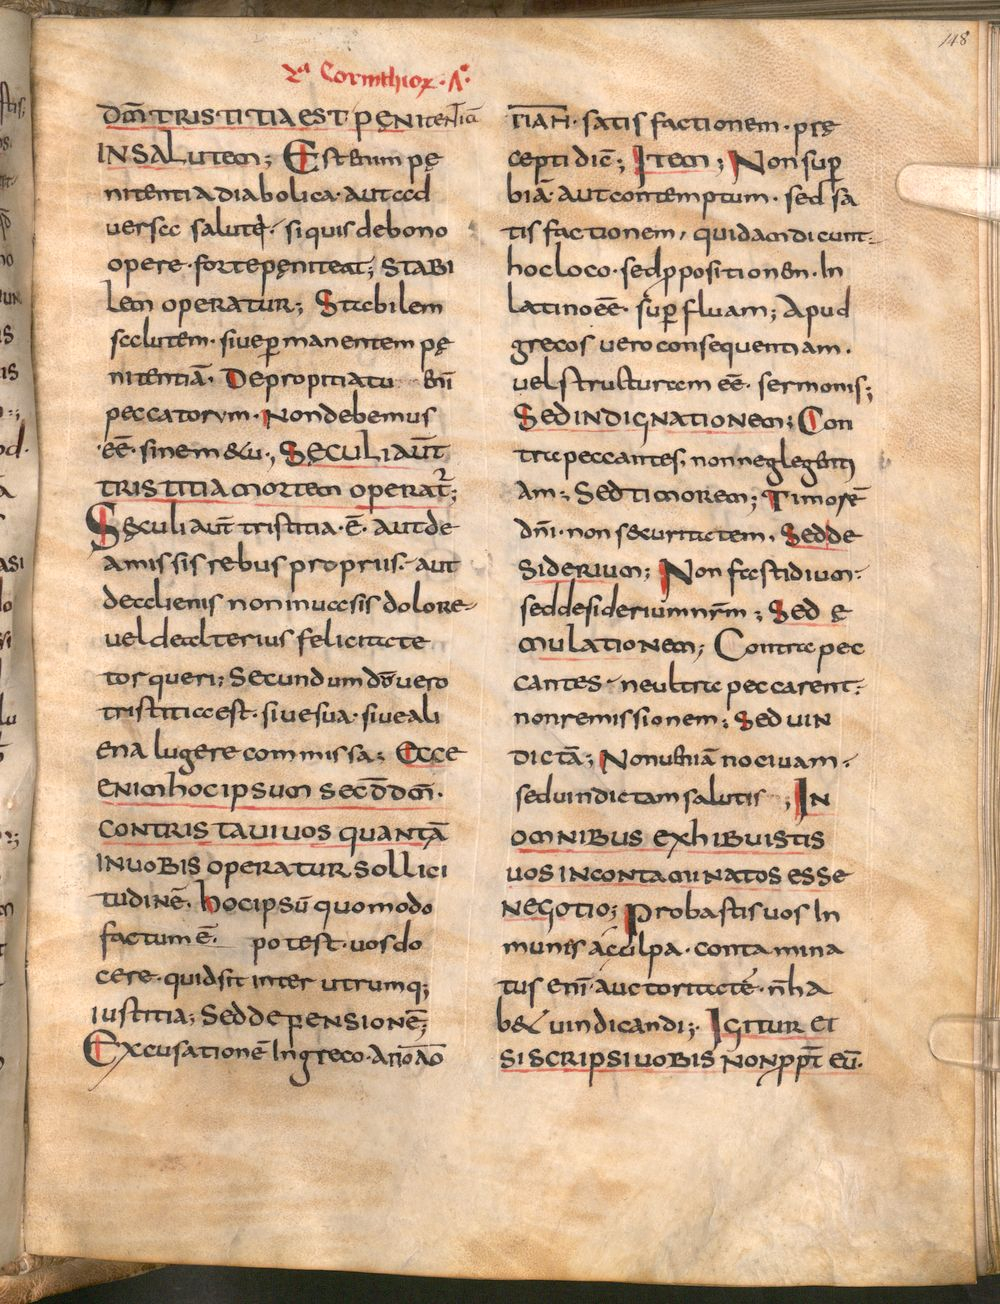 148
2a Corinthioꝝ · Λ°·
DM̄ · TRISTITIA EST PęNITENTIĀ
IN SALUTEM; Est enim pę
nitentia diabolica · aut ad
uersa salutē · si quis de bono
opere · forte pęniteat; STABI
LEM OPERATUR; Stabilem
salutem · siue ꝑmanentem pę
nitentiā · De propitiatu enī
peccatorum · Non debemus
·eē· sine metu·, SęCULI AUT̄
TRISTITIA MORTEM OPERAT̄;
Sęculi aut̄ tristitia · ē · aut de
amissis rebus propriis · aut
de alienis non inuasis dolore
uel de alterius felicitate
torqueri; Secundum dm̄ uero
tristitia est · siue sua · siue ali
ena lugere commissa; ECCE
ENIM HOC IPSUM SECD̄ DM̄ ·
CONTRISTAUI UOS QUANTĀ
IN UOBIS OPERATUR SOLLICI
TUDINĒ · hoc ipsū quomodo
factum ē · potest · uos do
cere · quid sit inter utrumq;
iustitia; SED DEPENSIONĒ;
Excusationē In greco · ΑΠΟΛΟ
ΓΙΑΗ · satisfactionem · pre
cepti dic̄; Item; Non suꝑ
biā · aut contemptum · sed sa
tisfactionem, quidam dicunt
hoc loco · sed p̄positionem · In
latino eē · suꝑfluam; Apud
grecos uero consequentiam ·
uel structuram eē · sermonis;
SED INDIGNATIONEM; Con
tra peccantes, non neglegenti
am; SED TIMOREM; Timorē
dn̄i · non securitatem · SED DE
SIDERIUM; Non fastidium ·
sed desiderium nr̄m; SED ę
MULATIONEM; Contra pec
cantes · ne ultra peccarent;
non remissionem; SED UIN
DICTĀ; Non ueniā nociuam ·
sed uindictam salutis ; IN
OMNIBUS EXHIBUISTIS
UOS INCONTAMINATOS ESSE
NEGOTIO; Probastis uos In
munes a culpa · contamina
tus enī auctoritatē · ñ ha
bet uindicandi; IGITUR ET
SI SCRIPSI UOBIS NON PPT̄ EŪ ·